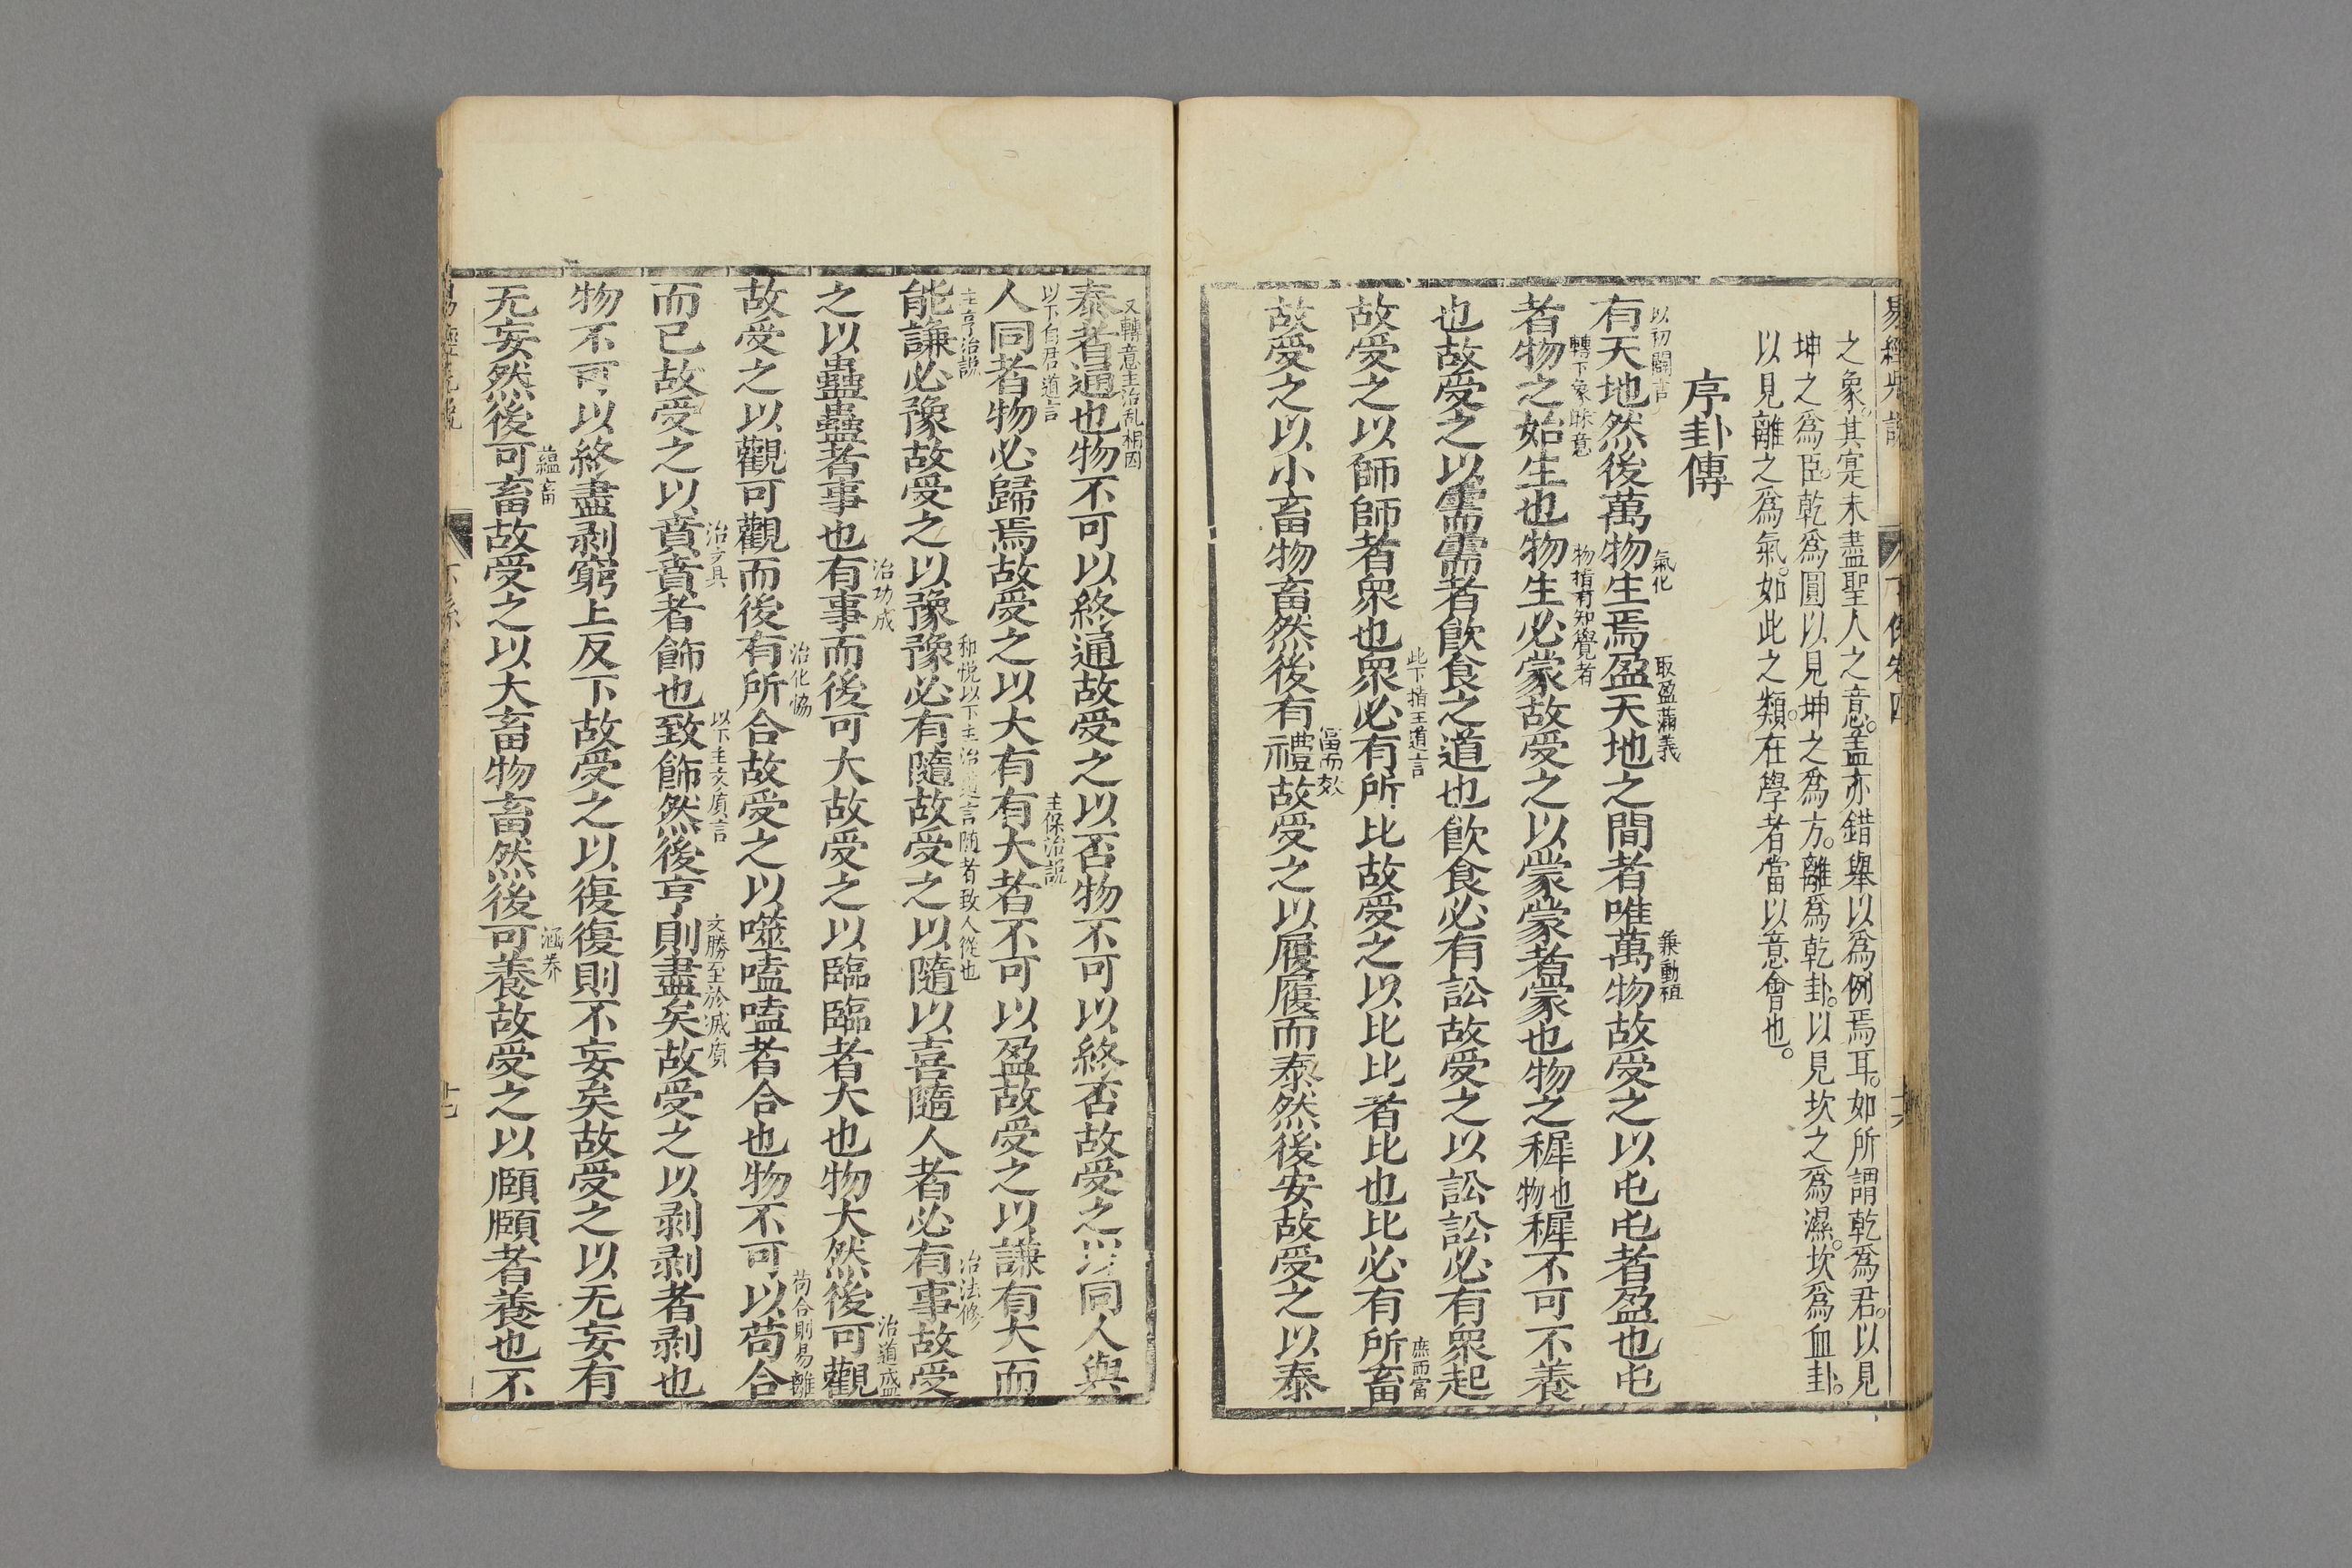 之象。其寔未盡聖人之意。盖亦錯舉以爲例焉耳。如所謂乾爲君。以見
坤之爲臣。乾爲圓以見坤之爲方。離爲乾卦。以見坎之爲濕。坎爲血卦。
以見離之爲氣。如此之類。在學者當以意會也。
序卦傳
以初闢言
氣化
取盈滿義
兼動植
有天地然後萬物生焉盈天地之間者唯萬物故受之以屯屯者盈也屯
轉下象昧意
物指有知覺者
者物之始生也物生必蒙故受之以蒙蒙者蒙也物之穉也物穉不可不養
也故受之以需需者飲食之道也飲食必有訟故受之以訟訟必有衆起
此下指王道言
庶而富
故受之以師師者衆也衆必有所比故受之以比比者比也比必有所畜
富而教
故受之以小畜物畜然後有禮故受之以履履而泰然後安故受之以泰
又轉意主治乱相因
泰者通也物不可以終通故受之以否物不可以終否故受之以同人與
以下自君道言
主保治說
人同者物必歸焉故受之以大有有大者不可以盈故受之以謙有大而
主亨治說
和悅以下主治道言隨者致人從也
治法修
能謙必豫故受之以豫豫必有隨故受之以隨以喜隨人者必有事故受
治功成
治道盛
之以蠱蠱者事也有事而後可大故受之以臨臨者大也物大然後可觀
治化恊
苟合則易離
故受之以觀可觀而後有所合故受之以噬嗑嗑者合也物不可以苟合
治之具
以下主文質言
文勝至於滅質
而已故受之以賁賁者飾也致飾然後亨則盡矣故受之以剥剥者剥也
物不可以終盡剥窮上反下故受之以復復則不妄矣故受之以无妄有
蘊畜
涵养
无妄然後可畜故受之以大畜物畜然後可養故受之以頤頤者養也不